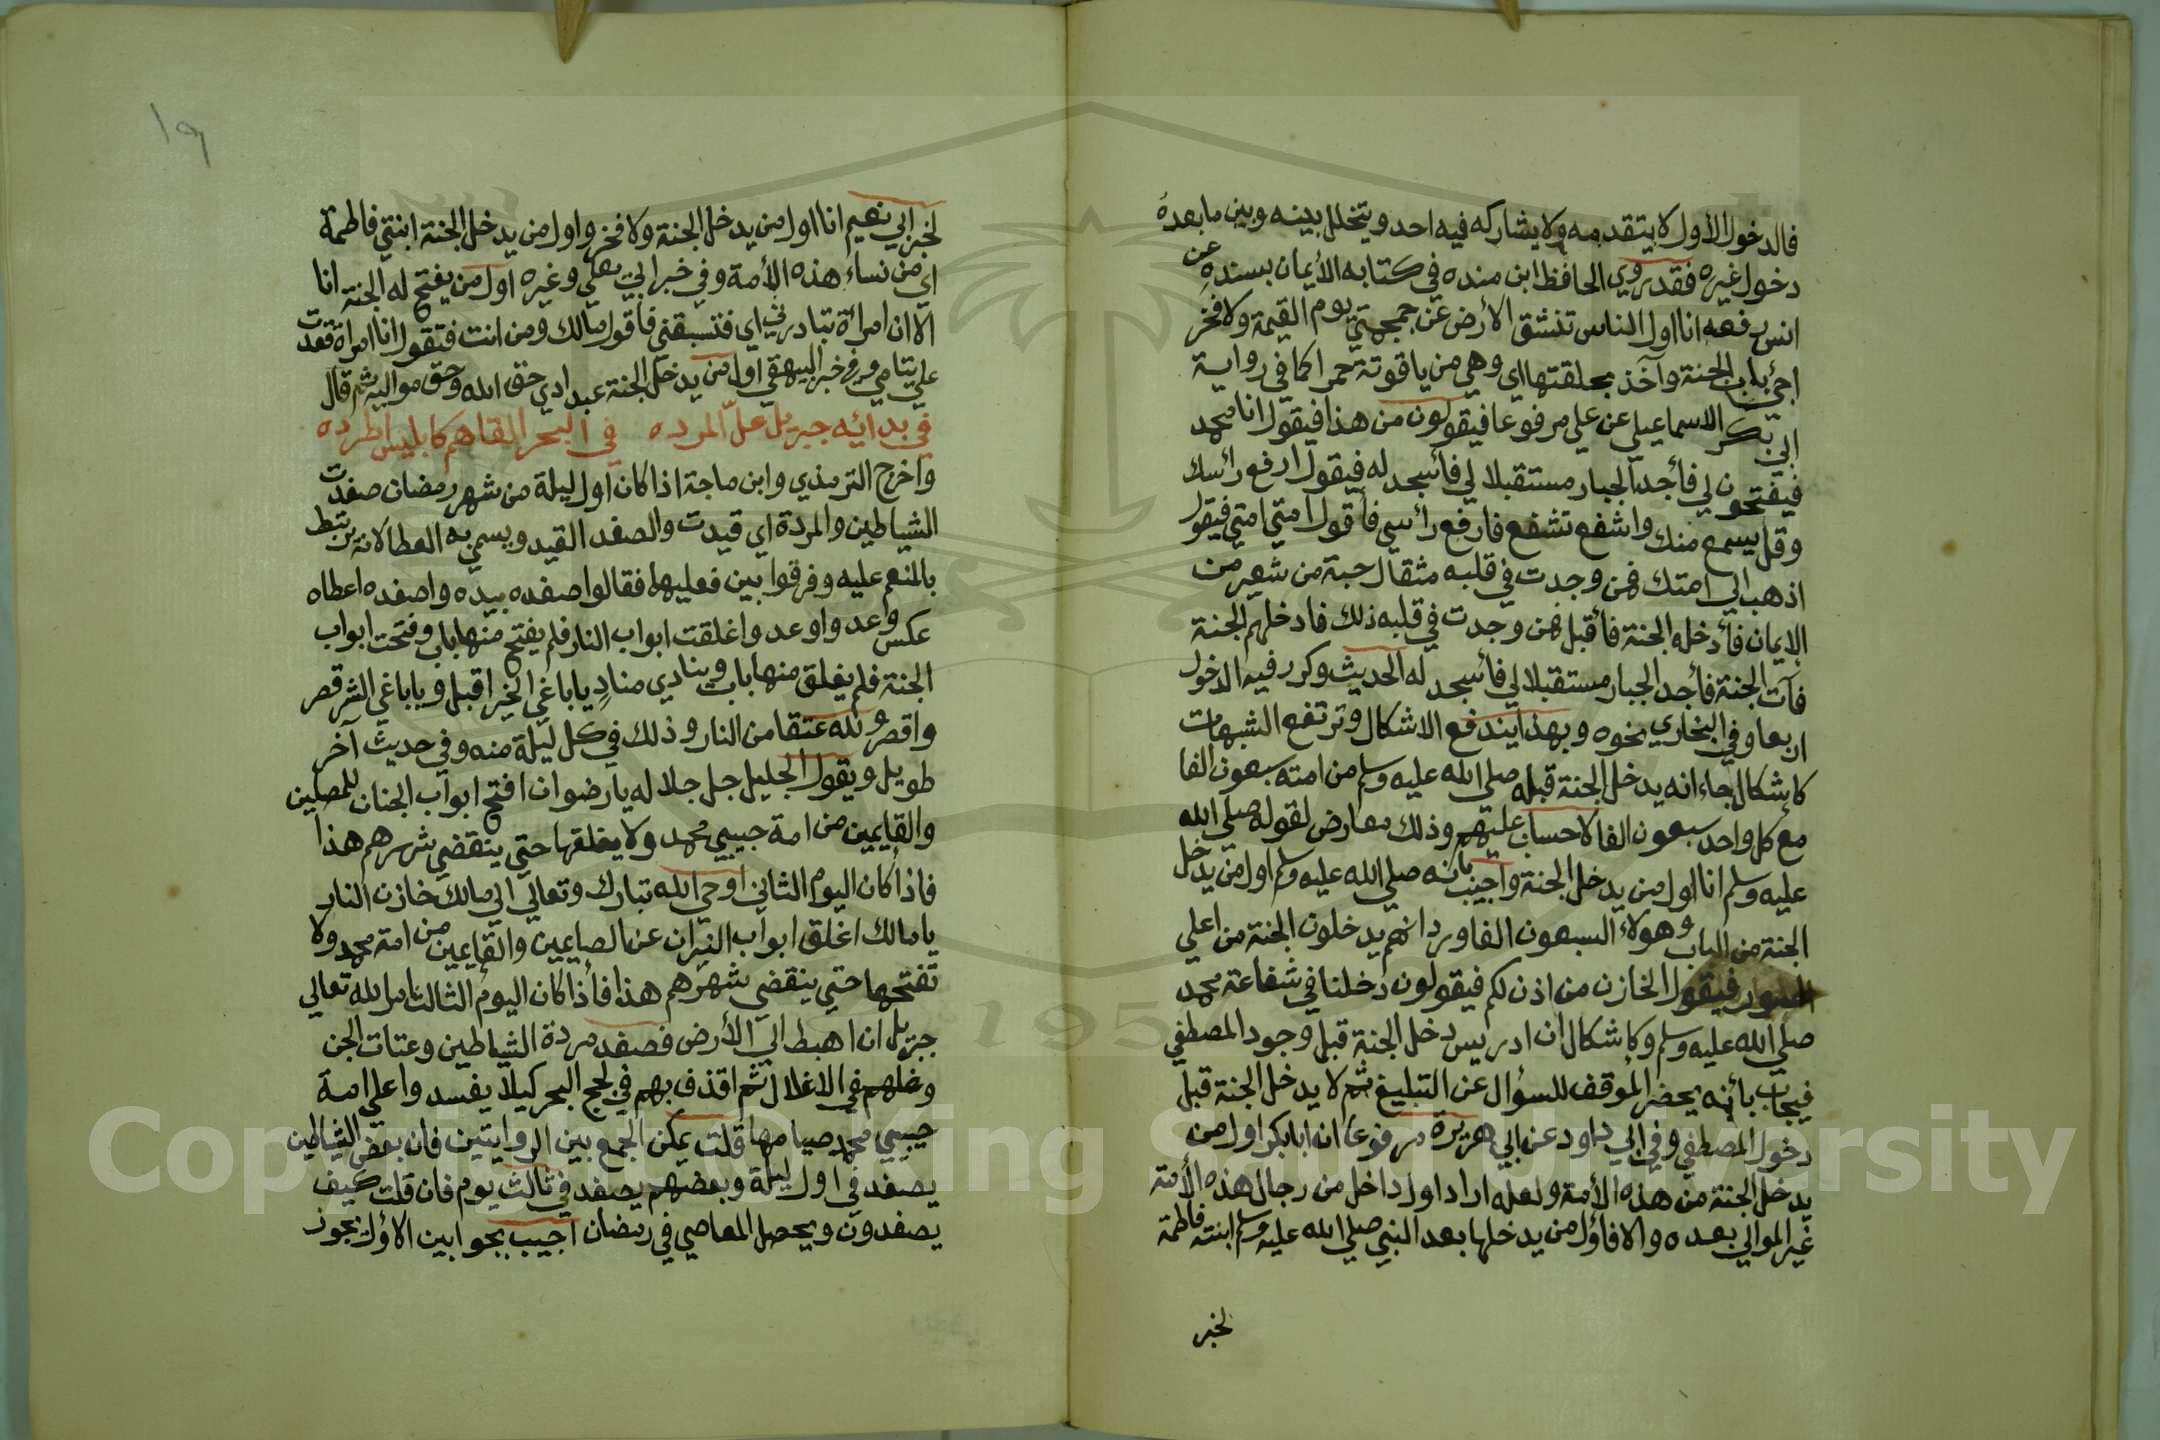 فالدخول الأول لا يتقدمه ولا يشاركه فيه احد ويتخلل بينه وبين ما بعده
دخول غيره فقد روي الحافظ ابن منده في كتابه الأيمان بسنده عن
انس رفعه انا اول الناس تنشق الأرض عن جمجمتي يوم القيمة ولا فخر
اجئ باب الجنة وآخذ بحلقتها اي وهي من ياقوتة حمرا كما في رواية
ابي بكر الاسماعيلي عن علي مرفوعا فيقولون من هذا فيقول انا محمد
فيفتحون لي فأجد الجبار مستقبلا لي فأسجد له فيقول ارفع رائسك
وقل يسمع منك واشفع تشفع فارفع رأسي فأقول امتي امتي فيقول
اذهب الي امتك فمن وجدت في قلبه مثقال حبة من شعير من
الايمان فأدخله الجنة فأقبل فمن وجدت في قلبه ذلك فادخلهم الجنة
فآت الجنة فأجد الجبار مستقبلا لي فأسجد له الحديث وكرر فيه الدخول
اربعا وفي البخاري نحوه وبهذا يندفع الاشكال وترتفع الشبهات
كاشكال جاء انه يدخل الجنة قبله صلي الله عليه وسلم من امته سبعون الفا
مع كل واحد سبعون الفا لا حساب عليهم وذلك معارض لقوله صلي الله
عليه وسلم انا اول من يدخل الجنة واجيب بأنه صلي الله عليه وسلم اول من يدخل
الجنة من الباب وهولاء السبعون الفا ورد انهم يدخلون الجنة من اعلي
السور فيقول الخازن من اذن لكم فيقولون دخلنا في شفاعة محمد
صلي الله عليه وسلم وكاشكال ان ادريس دخل الجنة قبل وجود المصطفي
فيجاب بأنه يحضر الموقف للسؤال عن التبليغ ثم لا يدخل الجنة قبل
دخول المصطفي وفي ابي داود عن ابي هريرة مرفوعا انه ابا بكر اول من
يدخل الجنة من هذه الأمة ولعله اراد اول داخل من رجال هذه الأمة
غير الموالي بعده والا فأول من يدخلها بعد النبي صلي الله عليه وسلم ابنته فاطمة
لخبر
١٩
لخبر ابي نعيم انا اول من يدخل الجنة ولا فخر واول من يدخل الجنة ابنتي فاطمة
اي من نساء هذه الأمة وفي خبر ابي يعلي وغيره اول من يفتح له الجنة انا
الا ان امراة تبادرني اي فتسبقني فاقول مالك ومن انت فتقول انا امراة قعدت
علي يتامي وفي خبر البيهقي اول من يدخل الجنة عبد ادي حق الله وحق مواليه ثم قال
في بدائيه جبريل غل المرده في البحر القاهم كابليس اطرده
واخرج الترمذي وابن ماجة اذا كان اول ليلة من شهر رمضان صفدت
الشياطين والمردة اي قيدت والصفد القيد ويسمي به العطا لانه يرتبط
بالمنعم عليه وفرقوا بين فعليهما فقالوا صفده بيده واصفده اعطاه
عكس وعد واوعد واغلقت ابواب النار فلم يفتح منها باب وفتحت ابواب
الجنة فلم يغلق منها باب وينادي مناد يا باغي الخير اقبل ويا باغي الشر قصر
واقصر ولله عتقا من النار وذلك في كل ليلة منه وفي حديث آخر
طويل ويقول الجليل جل جلاله يا رضوان افتح ابواب الجنان للمصلين
والقايمين من امة حبيبي محمد ولا يغلقها حتي ينقضي شهرهم هذا
فاذا كان اليوم الثاني اوحي الله تبارك وتعالي الي مالك خازن النار
يا مالك اغلق ابواب النيران عن الصايمين والقايمين من امة محمد ولا
تفتحها حتي ينقضي شهرهم هذا فأذا كان اليوم الثالث امر الله تعالي
جبريل ان اهبط الي الأرض فصفد مردة الشياطين وعتات الجن
وغلهم في الاغلال ثم اقذف بهم في لجج البحر كيلا يفسد واعلي امة
حبيبي محمد صيامها قلت يمكن الجمع بين الروايتين فان بعض الشياطين
يصفد في اول ليلة وبعضهم يصفد في ثالث يوم فان قلت كيف
يصفدون ويحصل المعاصي في رمضان اجيب بجوابين الاول يجوز
Copyright © King Saud University
195